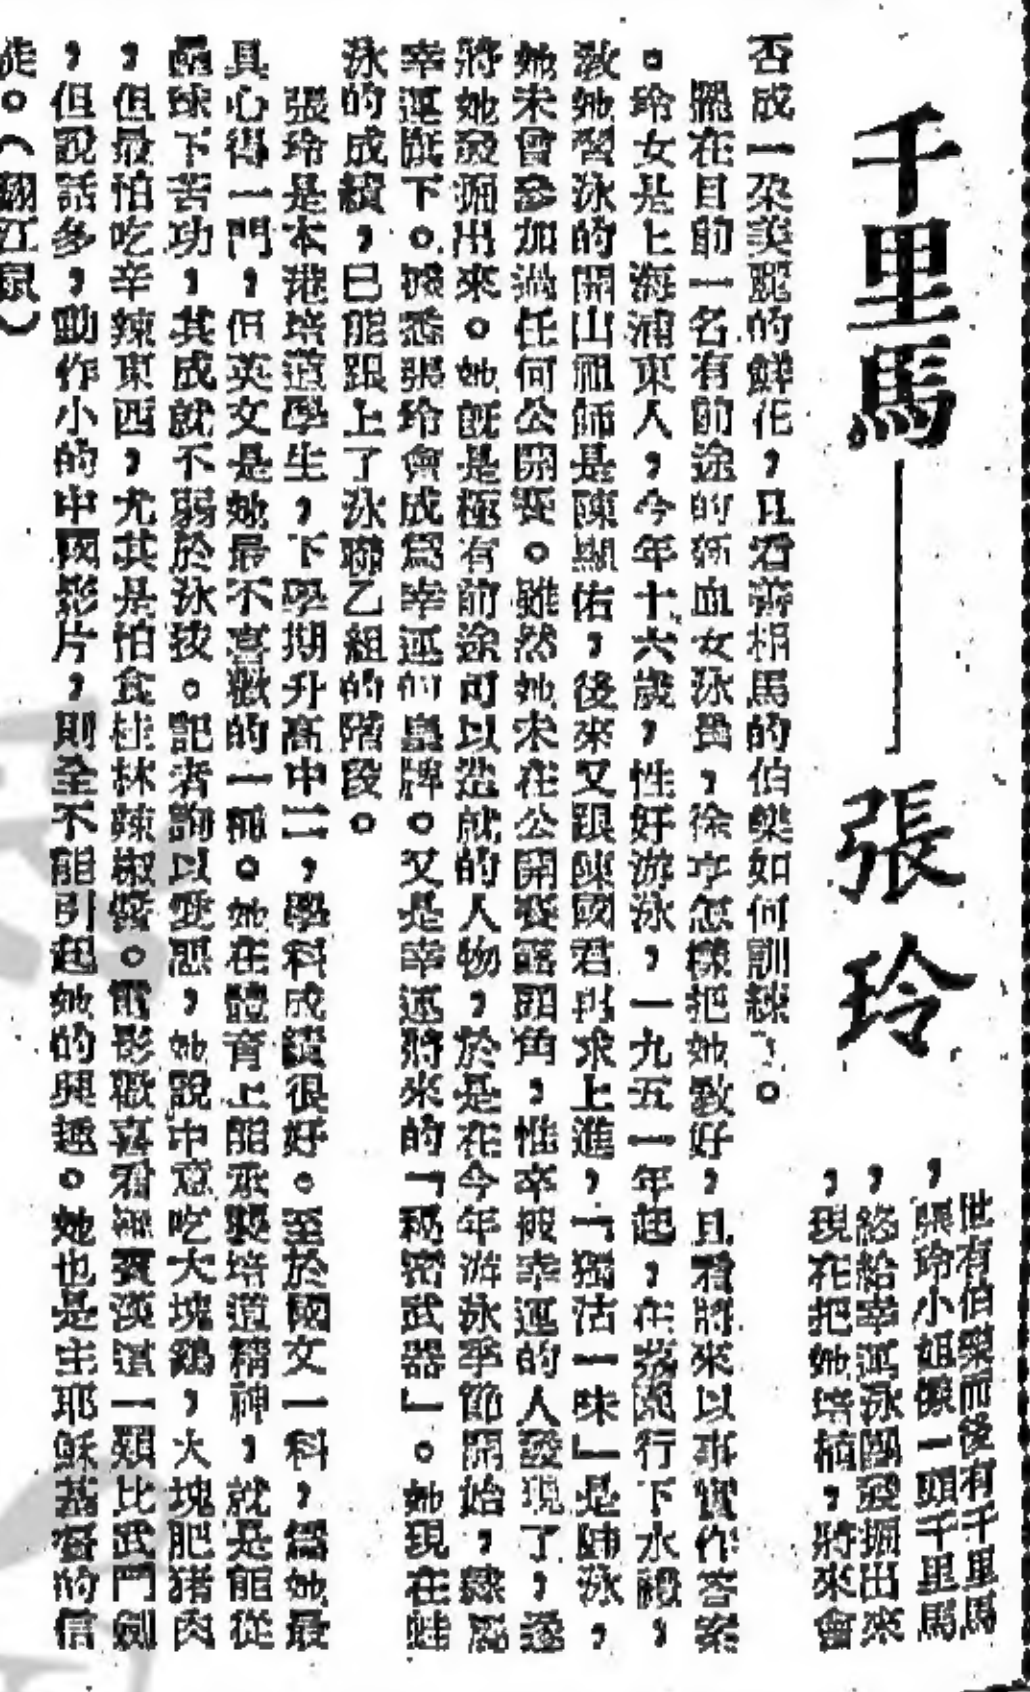 千里馬——張玲
世有伯樂而後有千里馬
，張玲小姐像一頭千里馬
，終給幸運泳團發掘出來
，現在把她培植，將來會
否成一朵美麗的鮮花，且看善相馬的伯樂如何訓練了。
擺在目前一名有前途的新血女泳員，徐亨怎樣把她教好，且看將來以事實作答案
。玲女是上海浦東人，今年十六歲，性好游泳，一九五一年起，在荔園行下水禮，
教她習泳的開山祖師是陳顯佑，後來又跟陳國君再求上進，「獨沽一味」是蛙泳，
她未曾參加過任何公開賽。雖然她未在公開賽露頭角，惟卒被幸運的人發現了，遂
將她發掘出來。她既是極有前途可以造就的人物，於是在今年游泳季節開始，隸屬
幸運旗下。據悉張玲會成爲幸運的皇牌。又是幸運將來的「秘密武器」。她現在蛙
泳的成績，已能跟上了泳聯乙組的階段。
張玲是本港培道學生，下學期升高中二，學科成績很好。至於國文一科，爲她最
具心得一門，但英文是她最不喜歡的一種。她在體育上能承襲培道精神，就是能從
壘球下苦功，其成就不弱於泳技。記者詢以愛惡，她說中意吃大塊鷄，大塊肥猪肉
，但最怕吃辛辣東西，尤其是怕食桂林辣椒醬。電影歡喜看神怪一類比武鬥劍
，但說話多，動作小的中國影片，則全不能引起她的興趣。她也是主耶穌基督的信
徒。（翻江鼠）